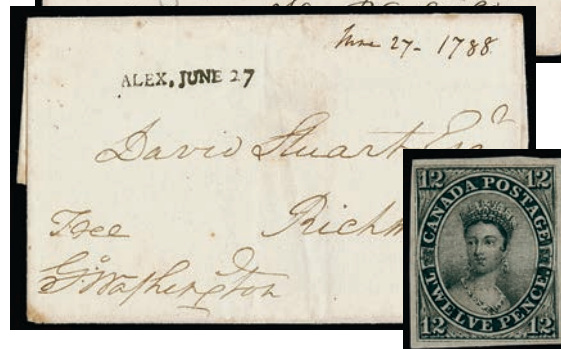 June 27- 1788
ALEX, JUNE 27
David Stuart Esqr
Free
G:Washington
12 CANADA POSTAGE 12
TWELVE PENCE.
12 12